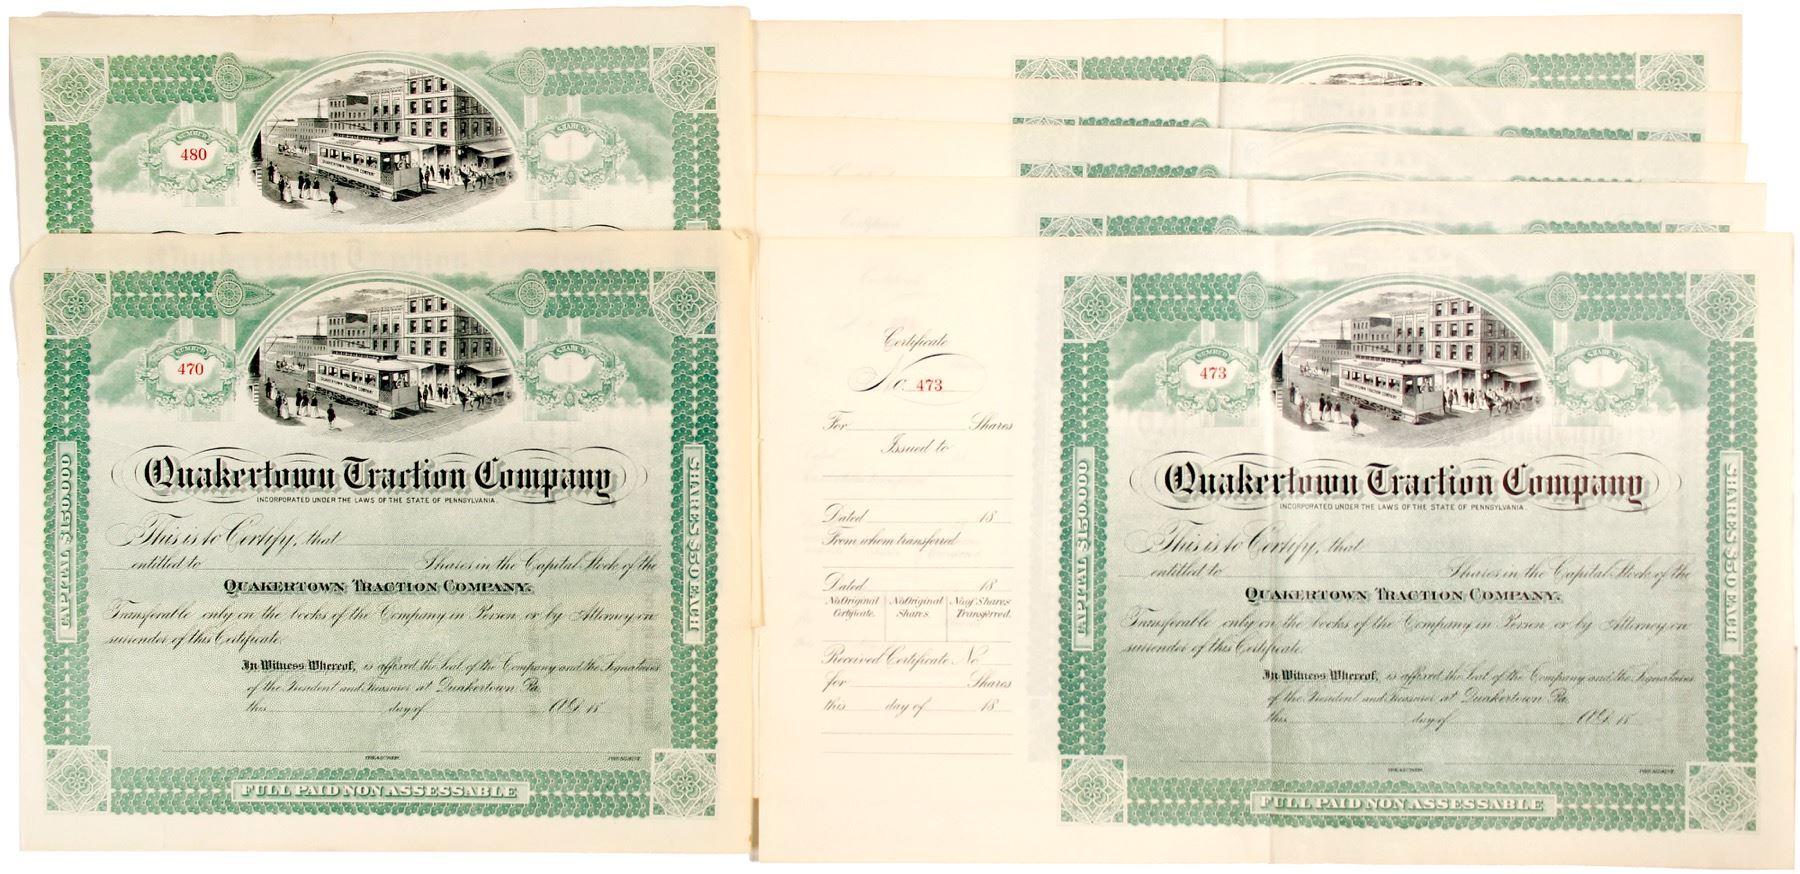 NUMBER
480
SHARES
QUAKERTOWN TRACTION COMPANY
NUMBER
470
SHARES
QUAKERTOWN TRACTION COMPANY
Quakertown Traction Company
INCORPORATED UNDER THE LAWS OF THE STATE OF PENNSYLVANIA.
CAPITAL $150.000
SHARES $50 EACH
This is to Certify, that
entitled to Shares in the Capital Stock of the
QUAKERTOWN TRACTION COMPANY.
Transferable only on the books of the Company in Person or by Attorney on
surrender of this Certificate.
In Witness Whereof, is affixed the Seal of the Company and the Signatures
of the President and Treasurer at Quakertown Pa.
this day of A.D. 18
TREASURER. PRESIDENT.
FULL PAID NON ASSESSABLE
Certificate
No. 473
For Shares
Issued to
Dated 18
From whom transferred
Dated 18
No. Original Certificate. No. Original Shares. No. of Shares Transferred.
Received Certificate No.
for Shares
this day of 18
NUMBER
473
SHARES
QUAKERTOWN TRACTION COMPANY
Quakertown Traction Company
INCORPORATED UNDER THE LAWS OF THE STATE OF PENNSYLVANIA.
CAPITAL $150.000
SHARES $50 EACH
This is to Certify, that
entitled to Shares in the Capital Stock of the
QUAKERTOWN TRACTION COMPANY.
Transferable only on the books of the Company in Person or by Attorney on
surrender of this Certificate.
In Witness Whereof, is affixed the Seal of the Company and the Signatures
of the President and Treasurer at Quakertown Pa.
this day of A.D. 18
TREASURER. PRESIDENT.
FULL PAID NON ASSESSABLE